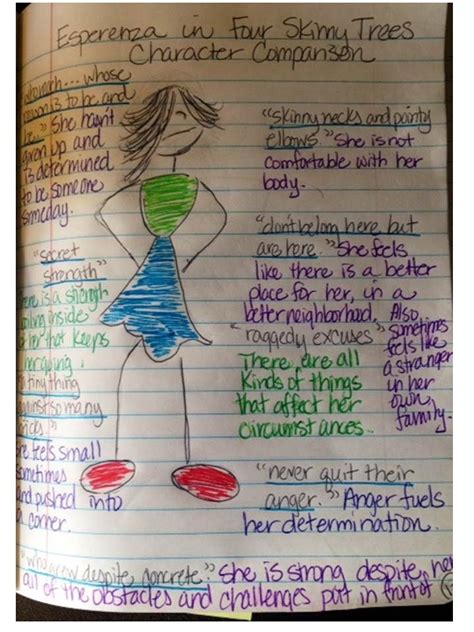 Esperenza in Four Skinny Trees
Character Comparison
whose
to be and
be." She hasn't
given up and
is determined
to be someone
someday.
"secret
strength"
There is a strength
inside
of her that keeps
her going.
tiny thing
against so many
bricks"
She feels small
sometimes
and pushed into
a corner.
"skinny necks and pointy
elbows." She is not
comfortable with her
body.
"don't belong here but
are here." She feels
like there is a better
place for her, in a
better neighborhood. Also,
sometimes
feels like
a stranger
in her
own
family.
"raggedy excuses"
There are all
kinds of things
that affect her
circumstances.
"never quit their
anger." Anger fuels
her determination.
"who grew despite concrete." She is strong despite
all of the obstacles and challenges put in front of